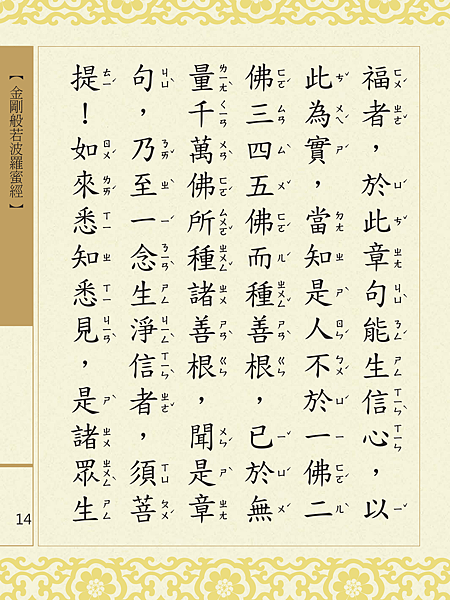 福者，於此章句能生信心，以
此為實，當知是人不於一佛二
佛三四五佛而種善根，已於無
量千萬佛所種諸善根，聞是章
句，乃至一念生淨信者，須菩
提！如來悉知悉見，是諸眾生
【金剛般若波羅蜜經】
14